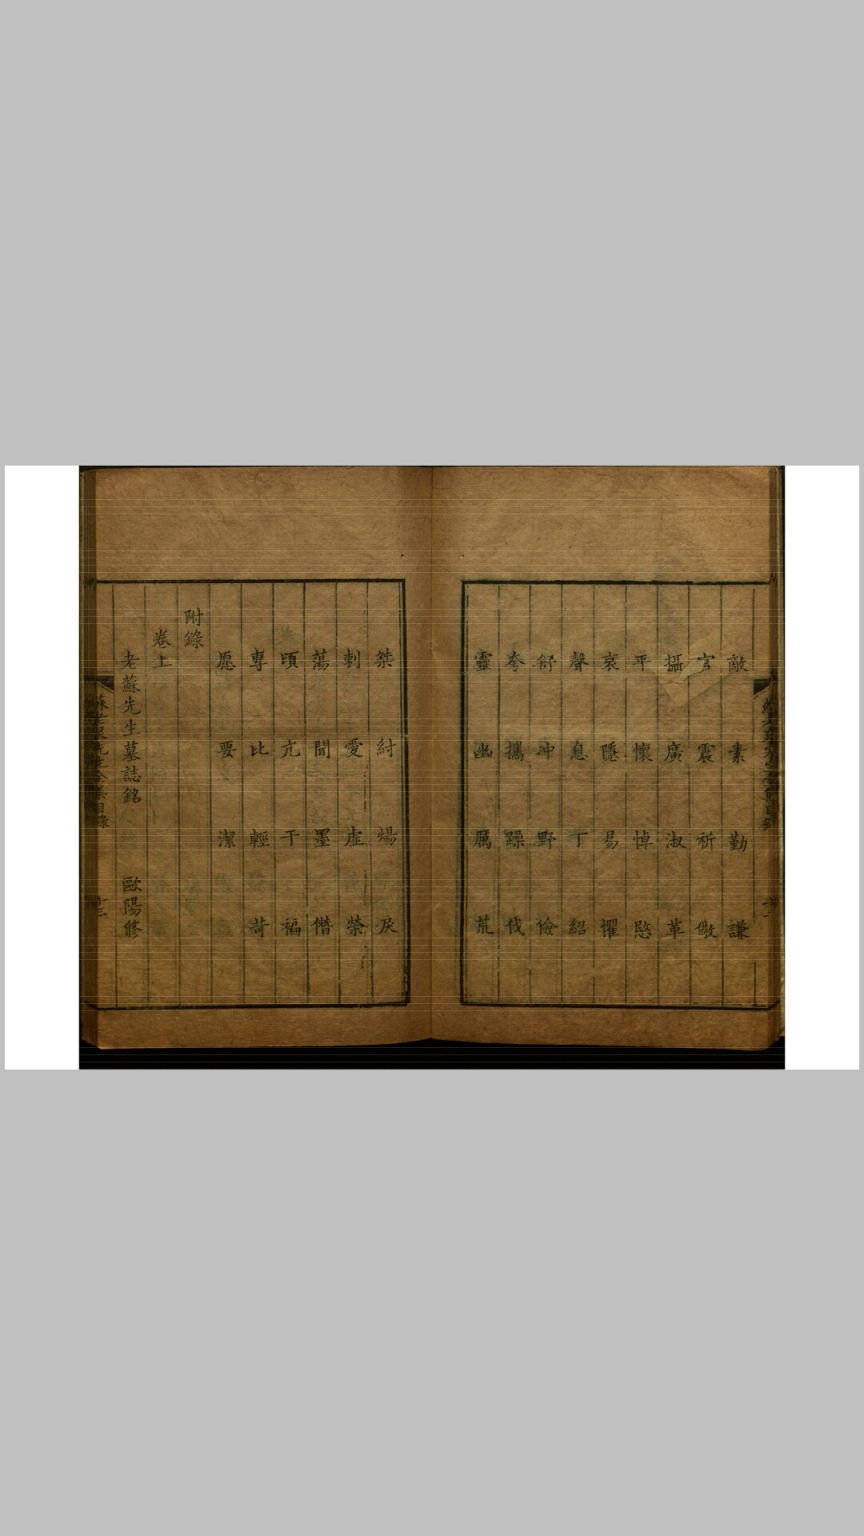 敵 素 勤 謙
言 震 祈 儆
攝 廣 淑 革
平 懷 悼 愍
哀 隱 易 懼
聲 息 丁 紹
舒 冲 野 儉
夸 攜 躁 伐
靈 幽 厲 荒
桀 紂 煬 戾
刺 愛 虛 榮
蕩 聞 墨 僭
頃 亢 干 福
專 比 輕 苛
愿 要 潔
附錄
卷上
老蘇先生墓誌銘 歐陽修
蘇老泉先生全集目錄